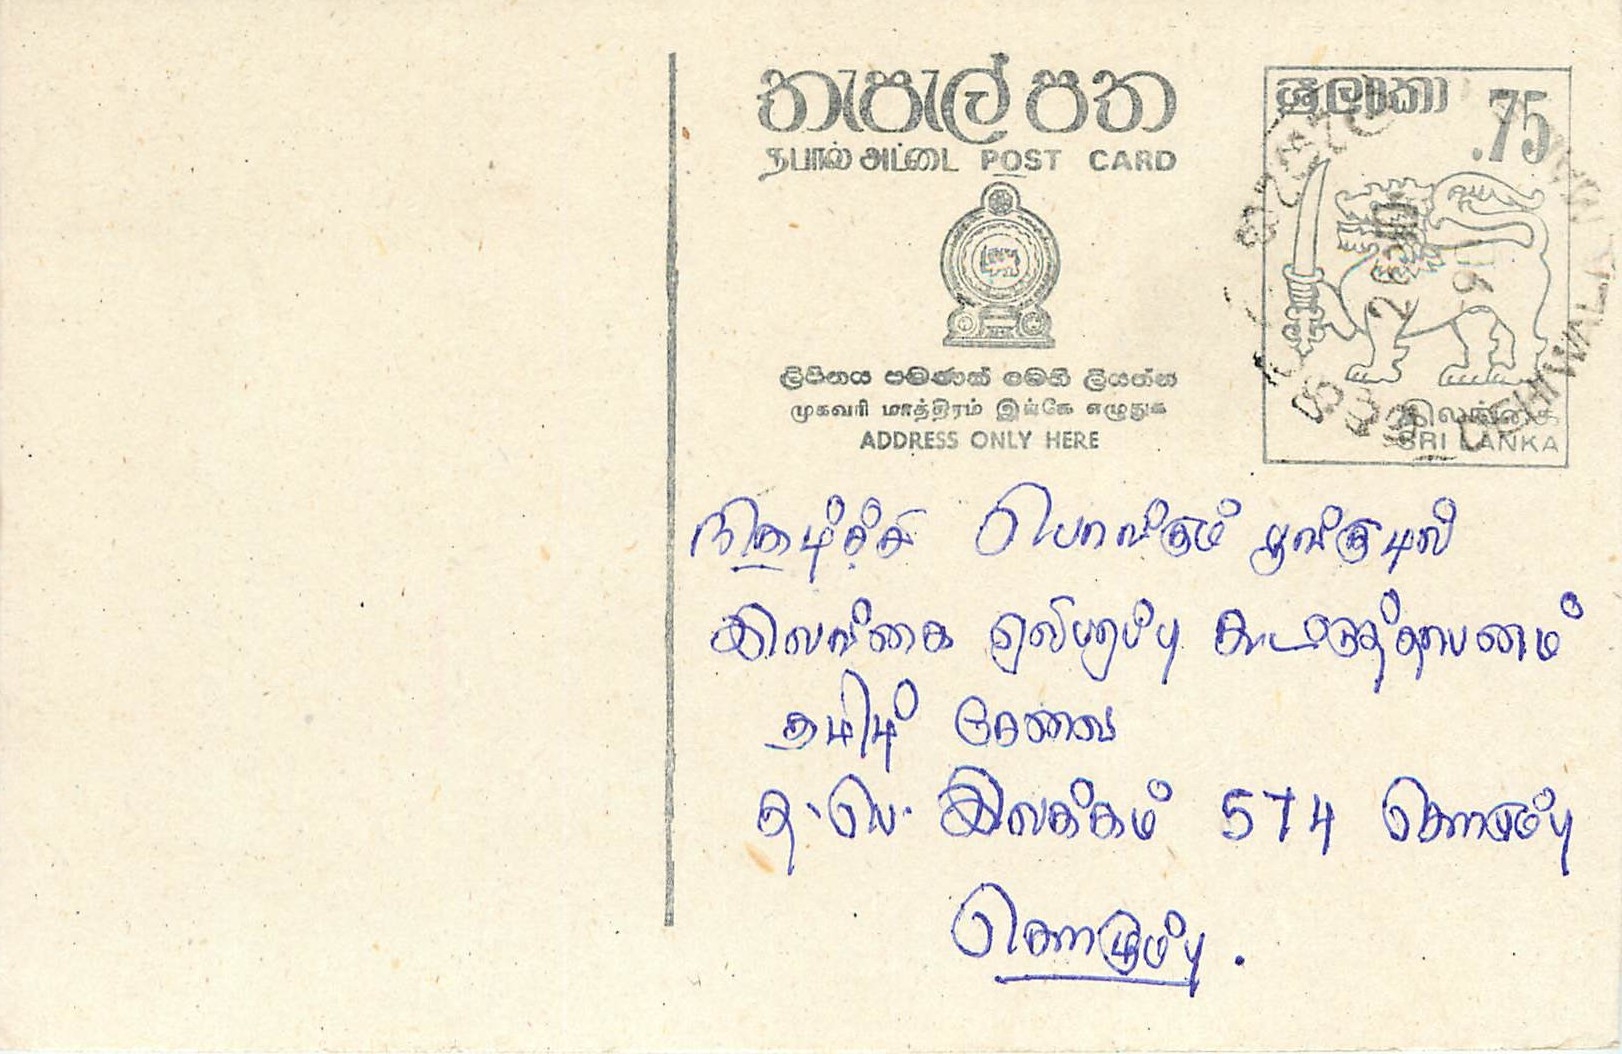 තැපැල් පත
தபால் அட்டை POST CARD
ශ්‍රී ලංකා .75
ලිපිනය පමණක් මෙහි ලියන්න
முகவரி மாத்திரம் இங்கே எழுதுக
ADDRESS ONLY HERE
இலங்கை
SRI LANKA
DEHIWALA
நிகழ்ச்சி பொங்கும் பூங்குயில்
இலங்கை ஒலிபரப்பு கூட்டுத்தாபனம்
தமிழ் சேவை
த. பெ. இலக்கம் 574 கொழும்பு
கொழும்பு.